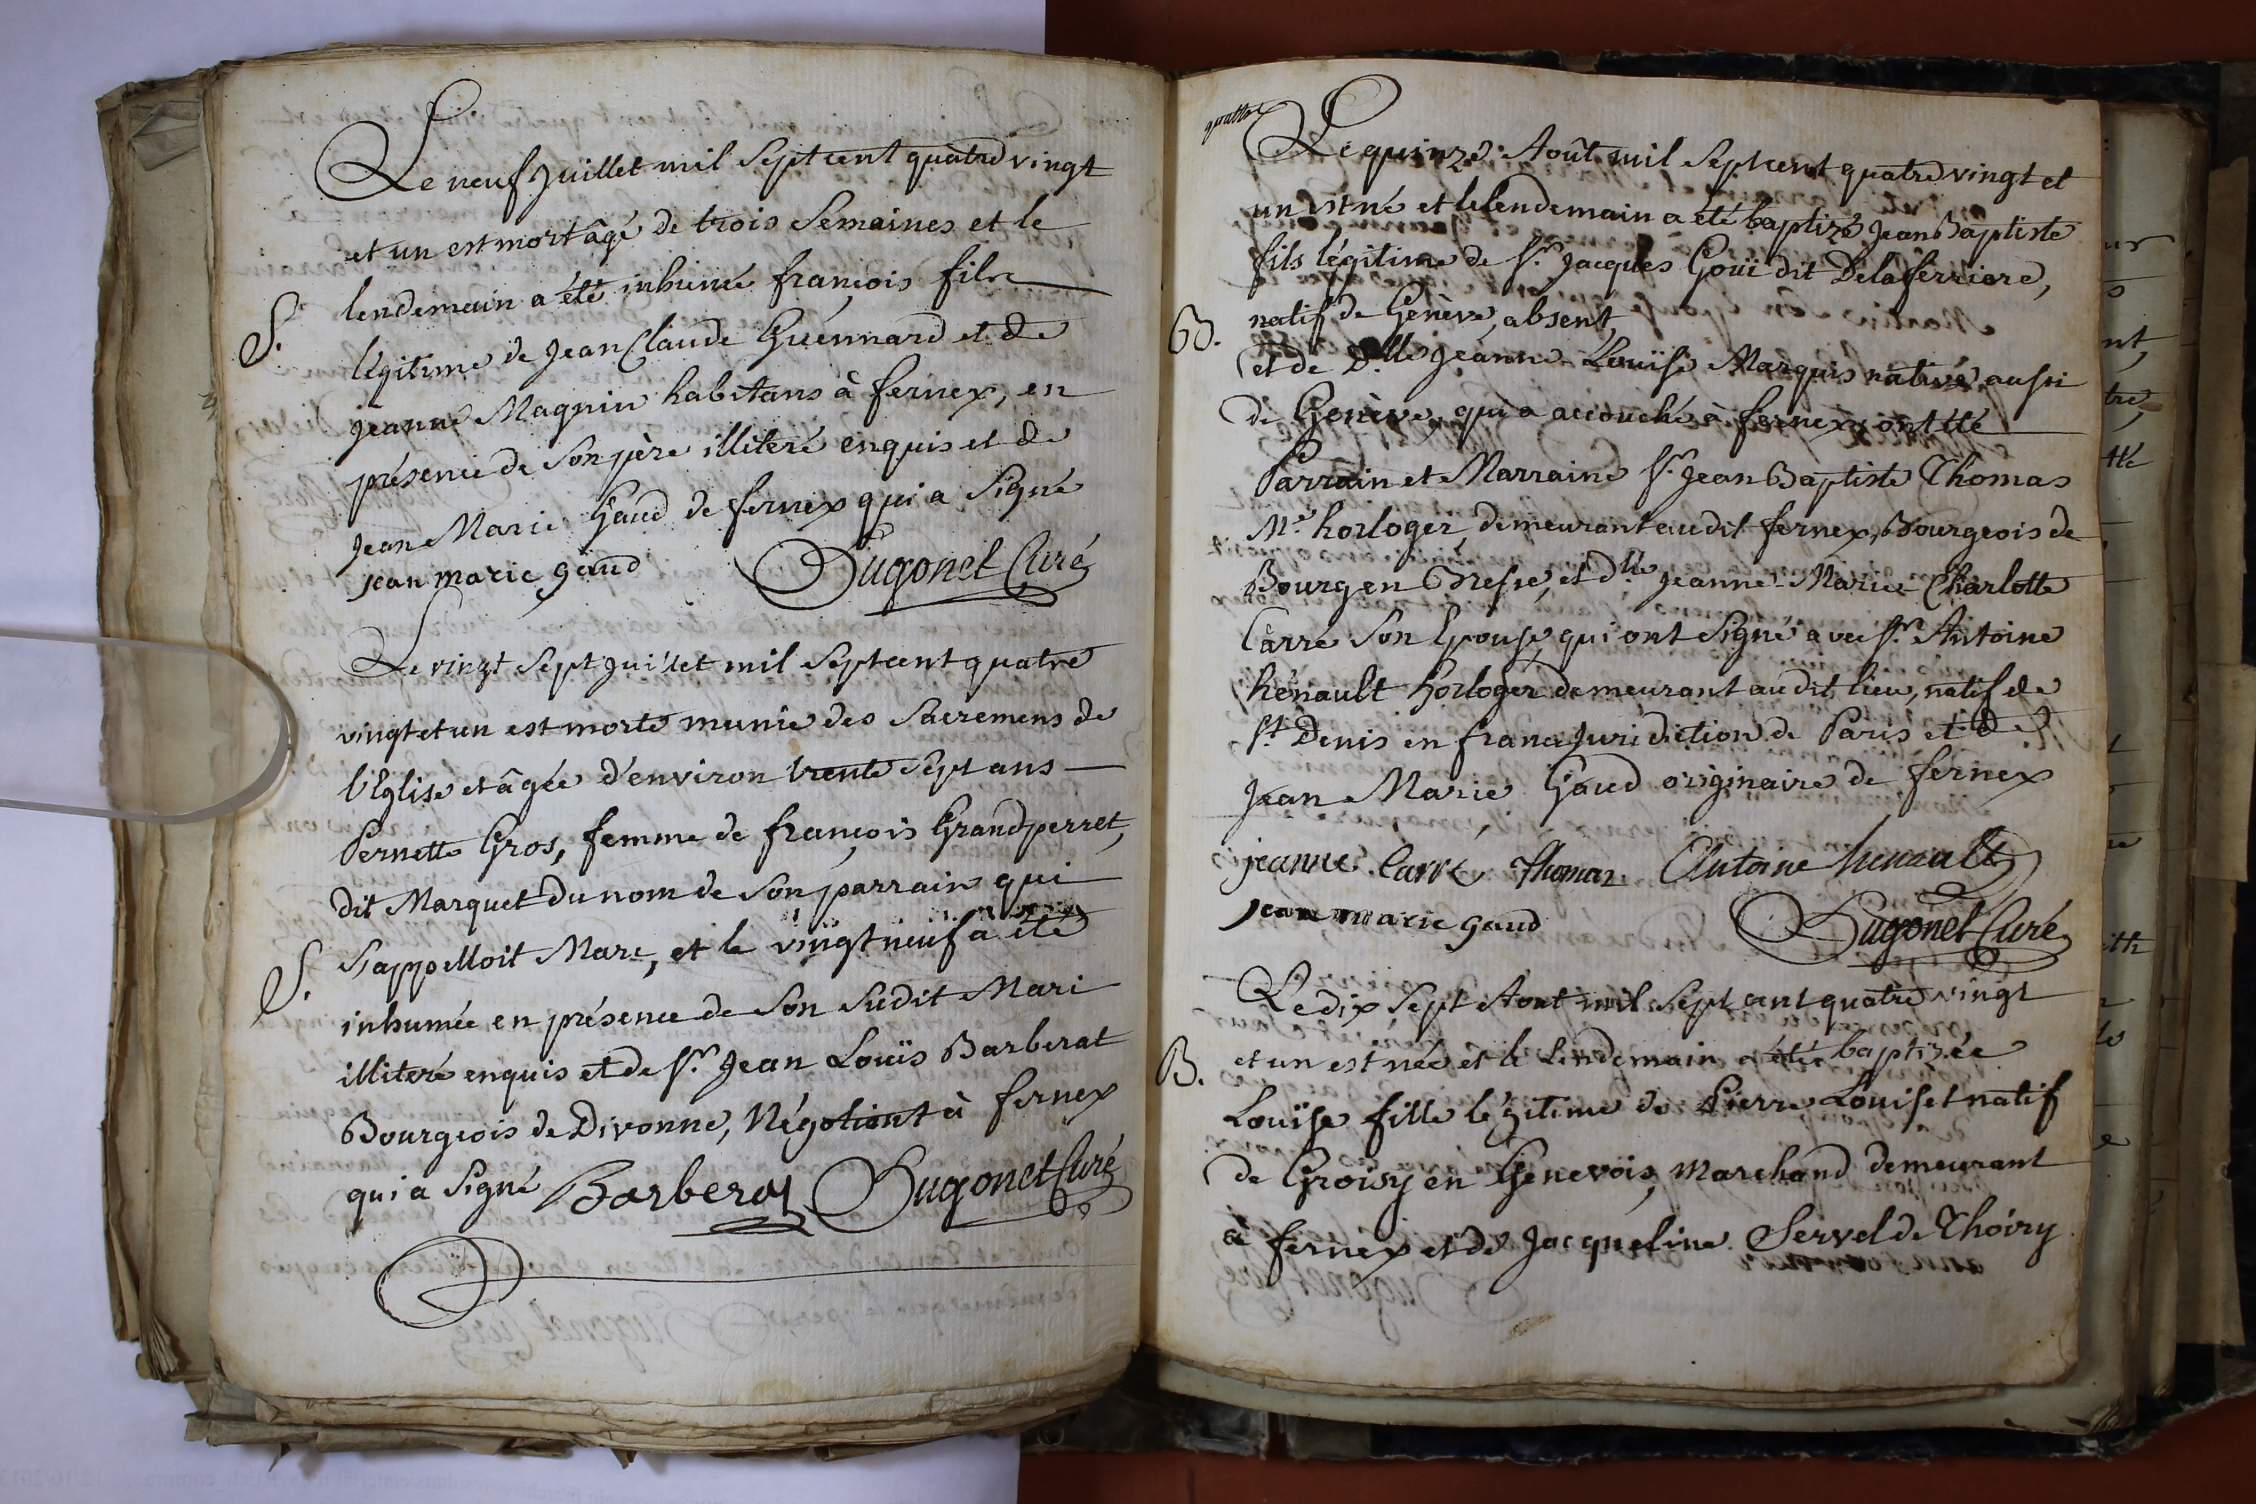 Le neuf Juillet mil Sept cent quatre vingt
et un est mort âgé de trois Semaines et le
lendemain a été inhumé françois fils
S.
légitime de Jean Claude Guénnard et de
jeanne Magnin habitans à fernex, en
présence de Son père illiteré enquis et de
Jean Marie Gaud de fernex qui a Signé
jean marie gaud Dugonet Curé
Le vingt Sept Juillet mil Sept cent quatre
vingt et un est morte munie des Sacremens de
l'Eglise et âgée d'environ trente Sept ans
Pernette Gros, femme de françois Grandperret,
dit Marquet du nom de Son parrain qui
S.
S'appelloit Marc, et le vingt neuf a été
inhumée en présence de Son Sudit Mari
illiteré enquis et de Sr. Jean Louïs Barberat
Bourgeois de Divonne, Négotiant à fernex
qui a Signé Barberat Dugonet Curé
quatre
Le quinze Août mil Sept cent quatre vingt et
un est né et le lendemain a été baptizé Jean Baptiste
fils légitime de Sr. Jacques Gouï dit Delaferriere,
natif de Genève, absent,
B.
et de Dlle Jeanne Louïse Marquis native aussi
de Genève, qui a accouché à fernex; ont été
Parrain et Marraine Sr. Jean Baptiste Thomas
Me. horloger, demeurant audit fernex, Bourgeois de
Bourg en Bresse, et dlle Jeanne-Marie-Charlotte
Carré Son Epouse, qui ont Signé avec Sr. Antoine
hénault horloger demeurant audit lieu, natif de
St. Denis en france Juridiction de Paris et de
Jean Marie Gaud originaire de fernex
jeanne Carré Thomas Antoine henault
jean marie gaud Dugonet Curé
Le dix Sept Aout mil Sept cent quatre vingt
et un est née et le Lendemain a été baptizée
B.
Louïse fille légitime de Pierre Louiset natif
de Groisy en Genevois, Marchand demeurant
à fernex et de Jacqueline Servel de Thoiry